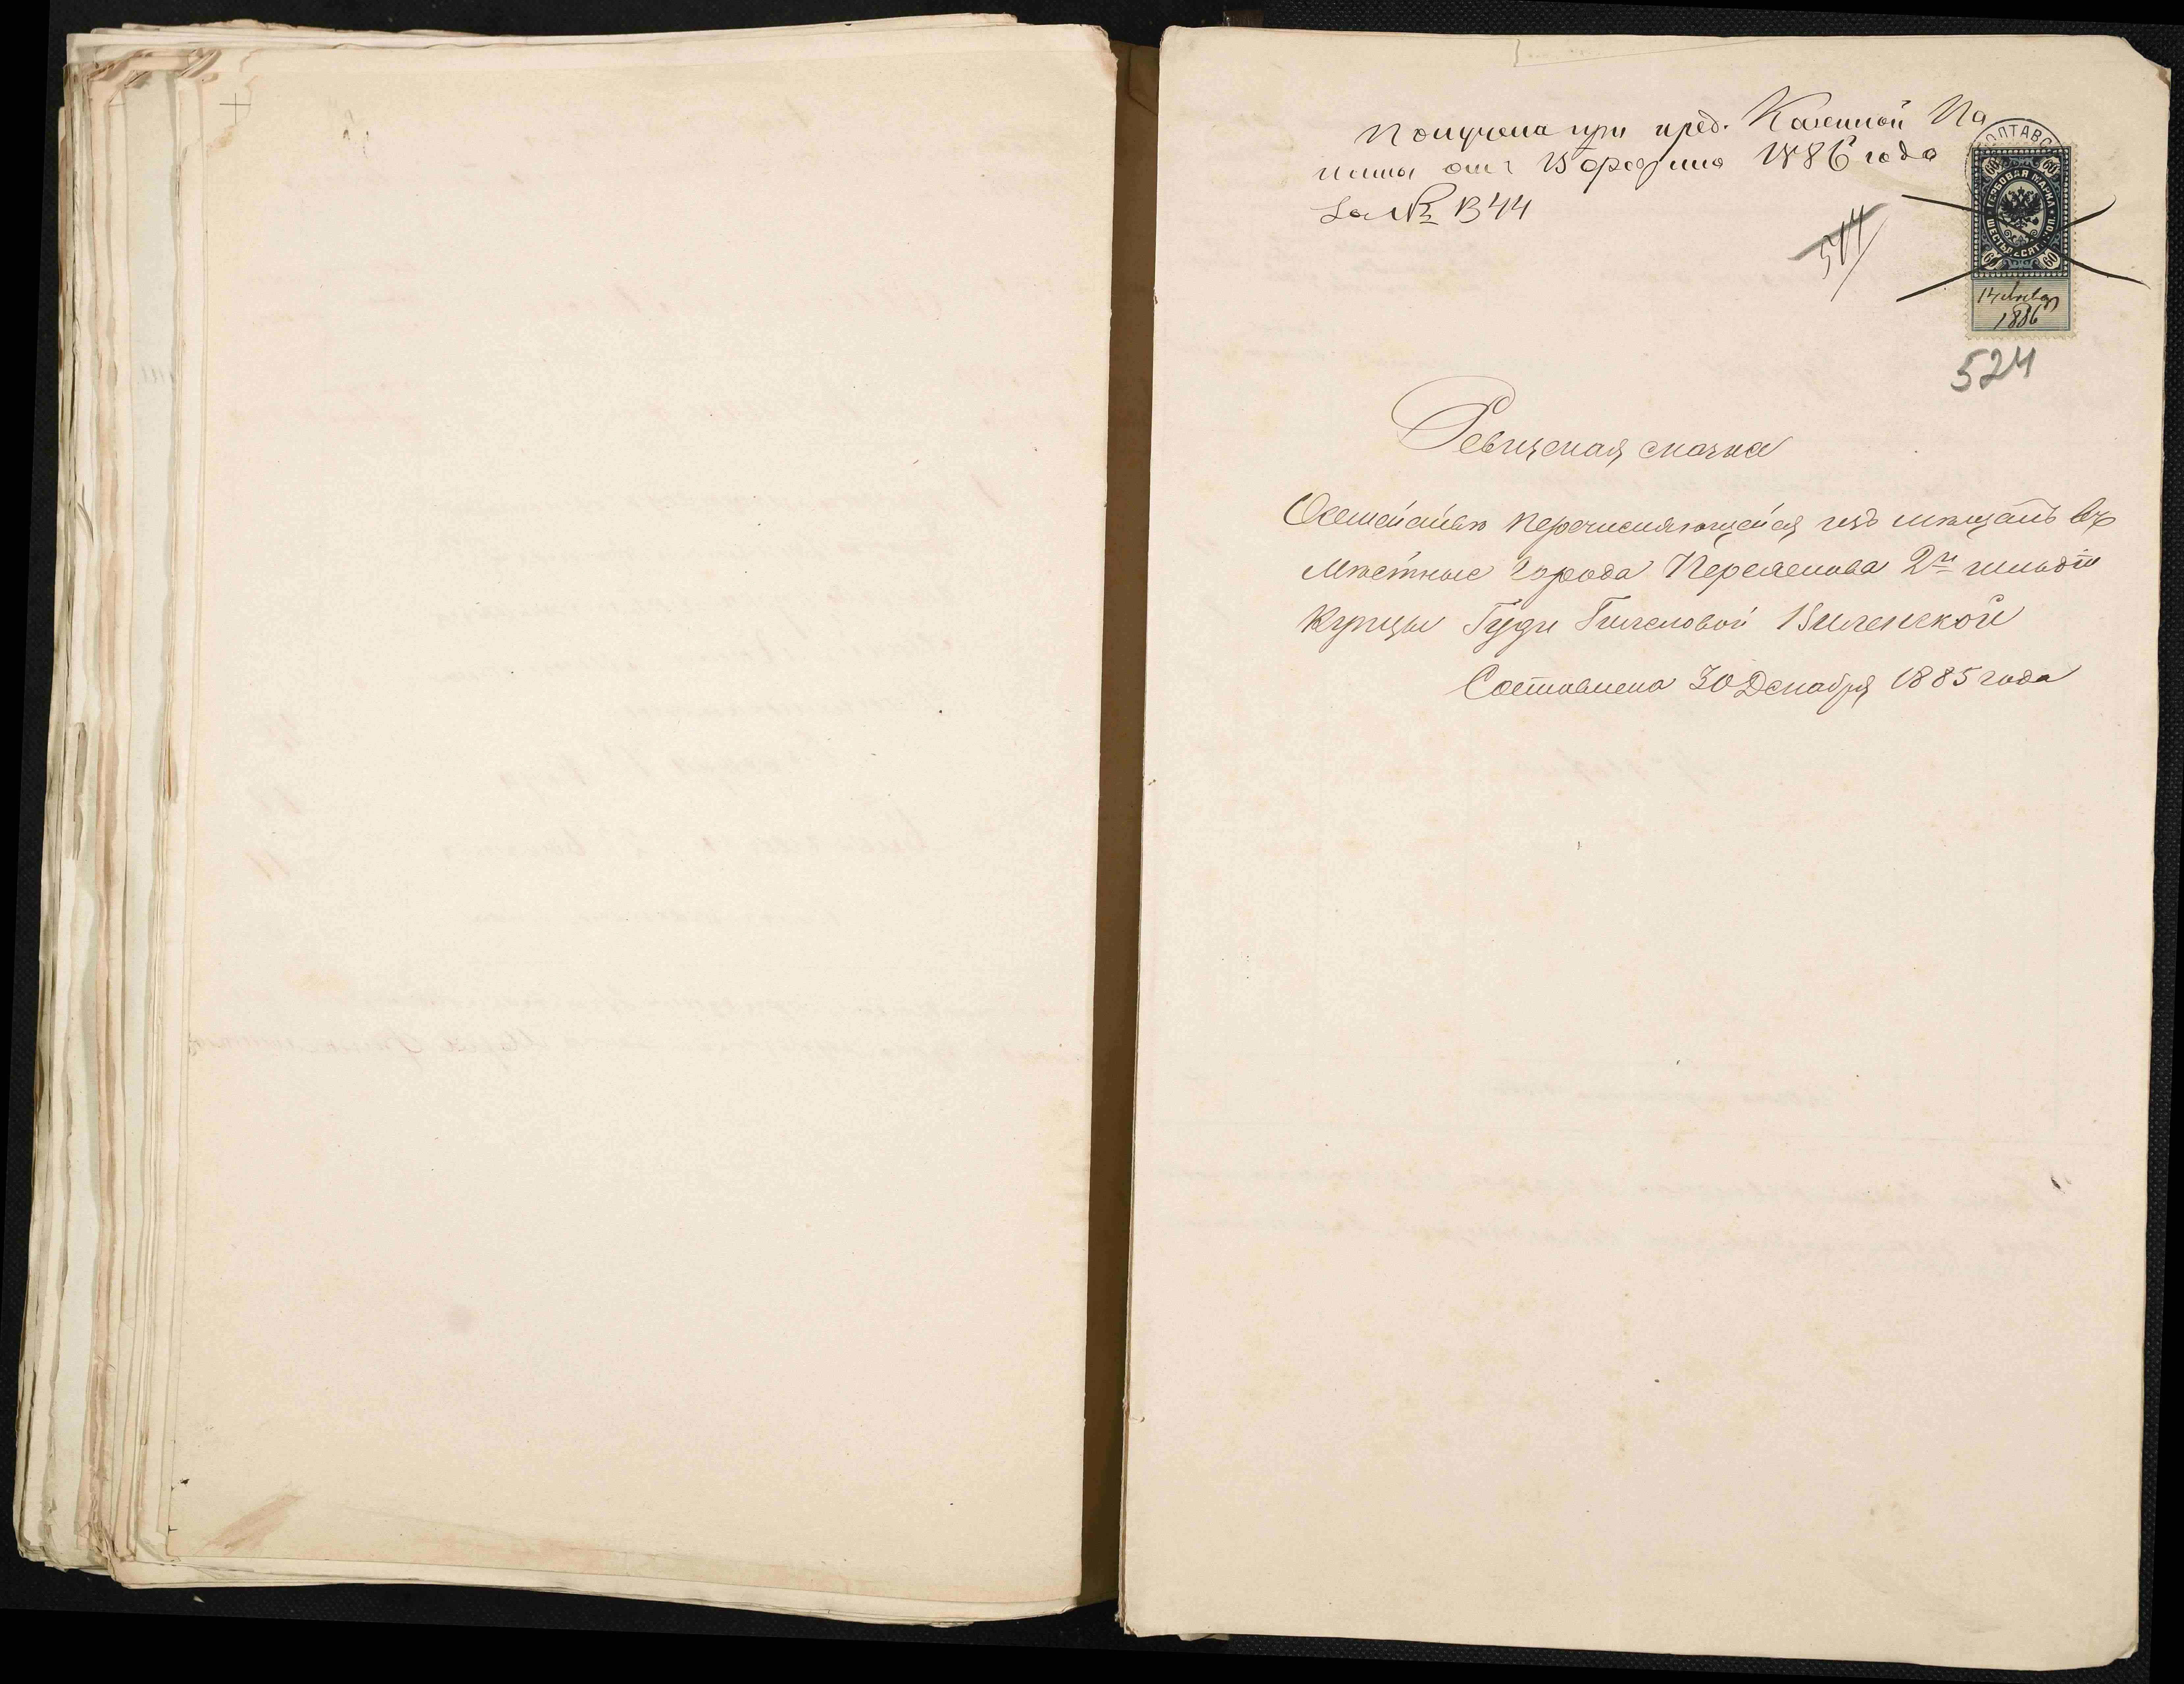 Получена при пред. Казенной Па
латы отъ 15 февраля 1886 года
За № 1344
ПОЛТАВС
60 60
ГЕРБОВАЯ МАРКА
ШЕСТЬДЕСЯТ КОП.
60 60
14 Января
1886
514
524
Ревизская сказка
О семействѣ перечисляющейся изъ мѣщанъ въ
мѣстные города Переяслава 2й гильдіи
Купцы Гиттелевой Виленской
Составлена 30 Декабря 1885 года